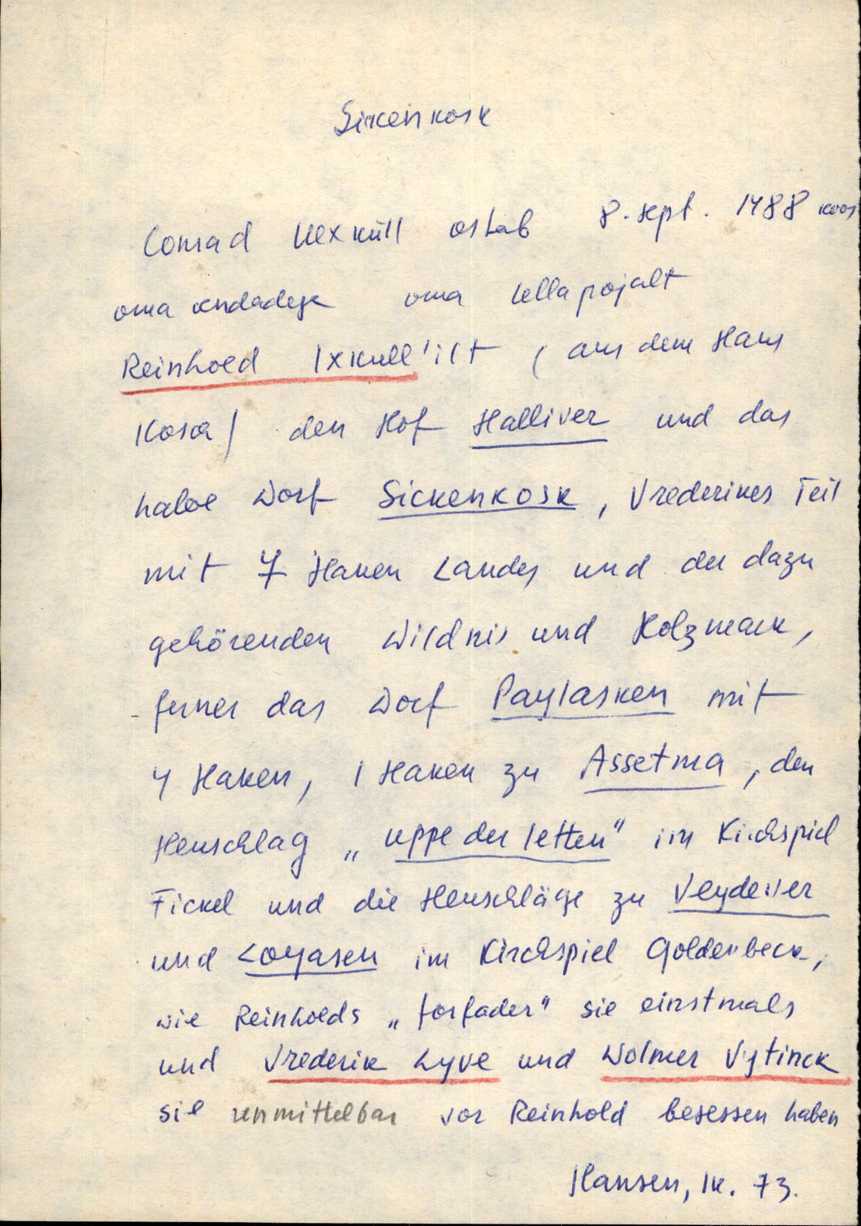 Sickenkosk
Conrad Uexküll ostab 8. sept. 1488 koos
oma vendadega oma lellapojalt
Reinhold Ixkull'ilt (aus dem Haus
Kosch) den Hof Halliver und das
halbe Dorf Sickenkosk, Vrederikes Teil
mit 7 Haken Landes und der dazu
gehörenden Wildnis und Holzmark,
ferner das Dorf Paylasken mit
4 Haken, 1 Haken zu Assetma, den
Heuschlag „uppe der letten" im Kirchspiel
Fickel und die Heuschläge zu Veydever
und Loyasen im Kirchspiel Goldenbeck,
wie Reinholds „forfader" sie einstmals
und Vrederik Lyve und Wolmer Vytinck
sie unmittelbar vor Reinhold besessen haben
Hansen, lk. 73.